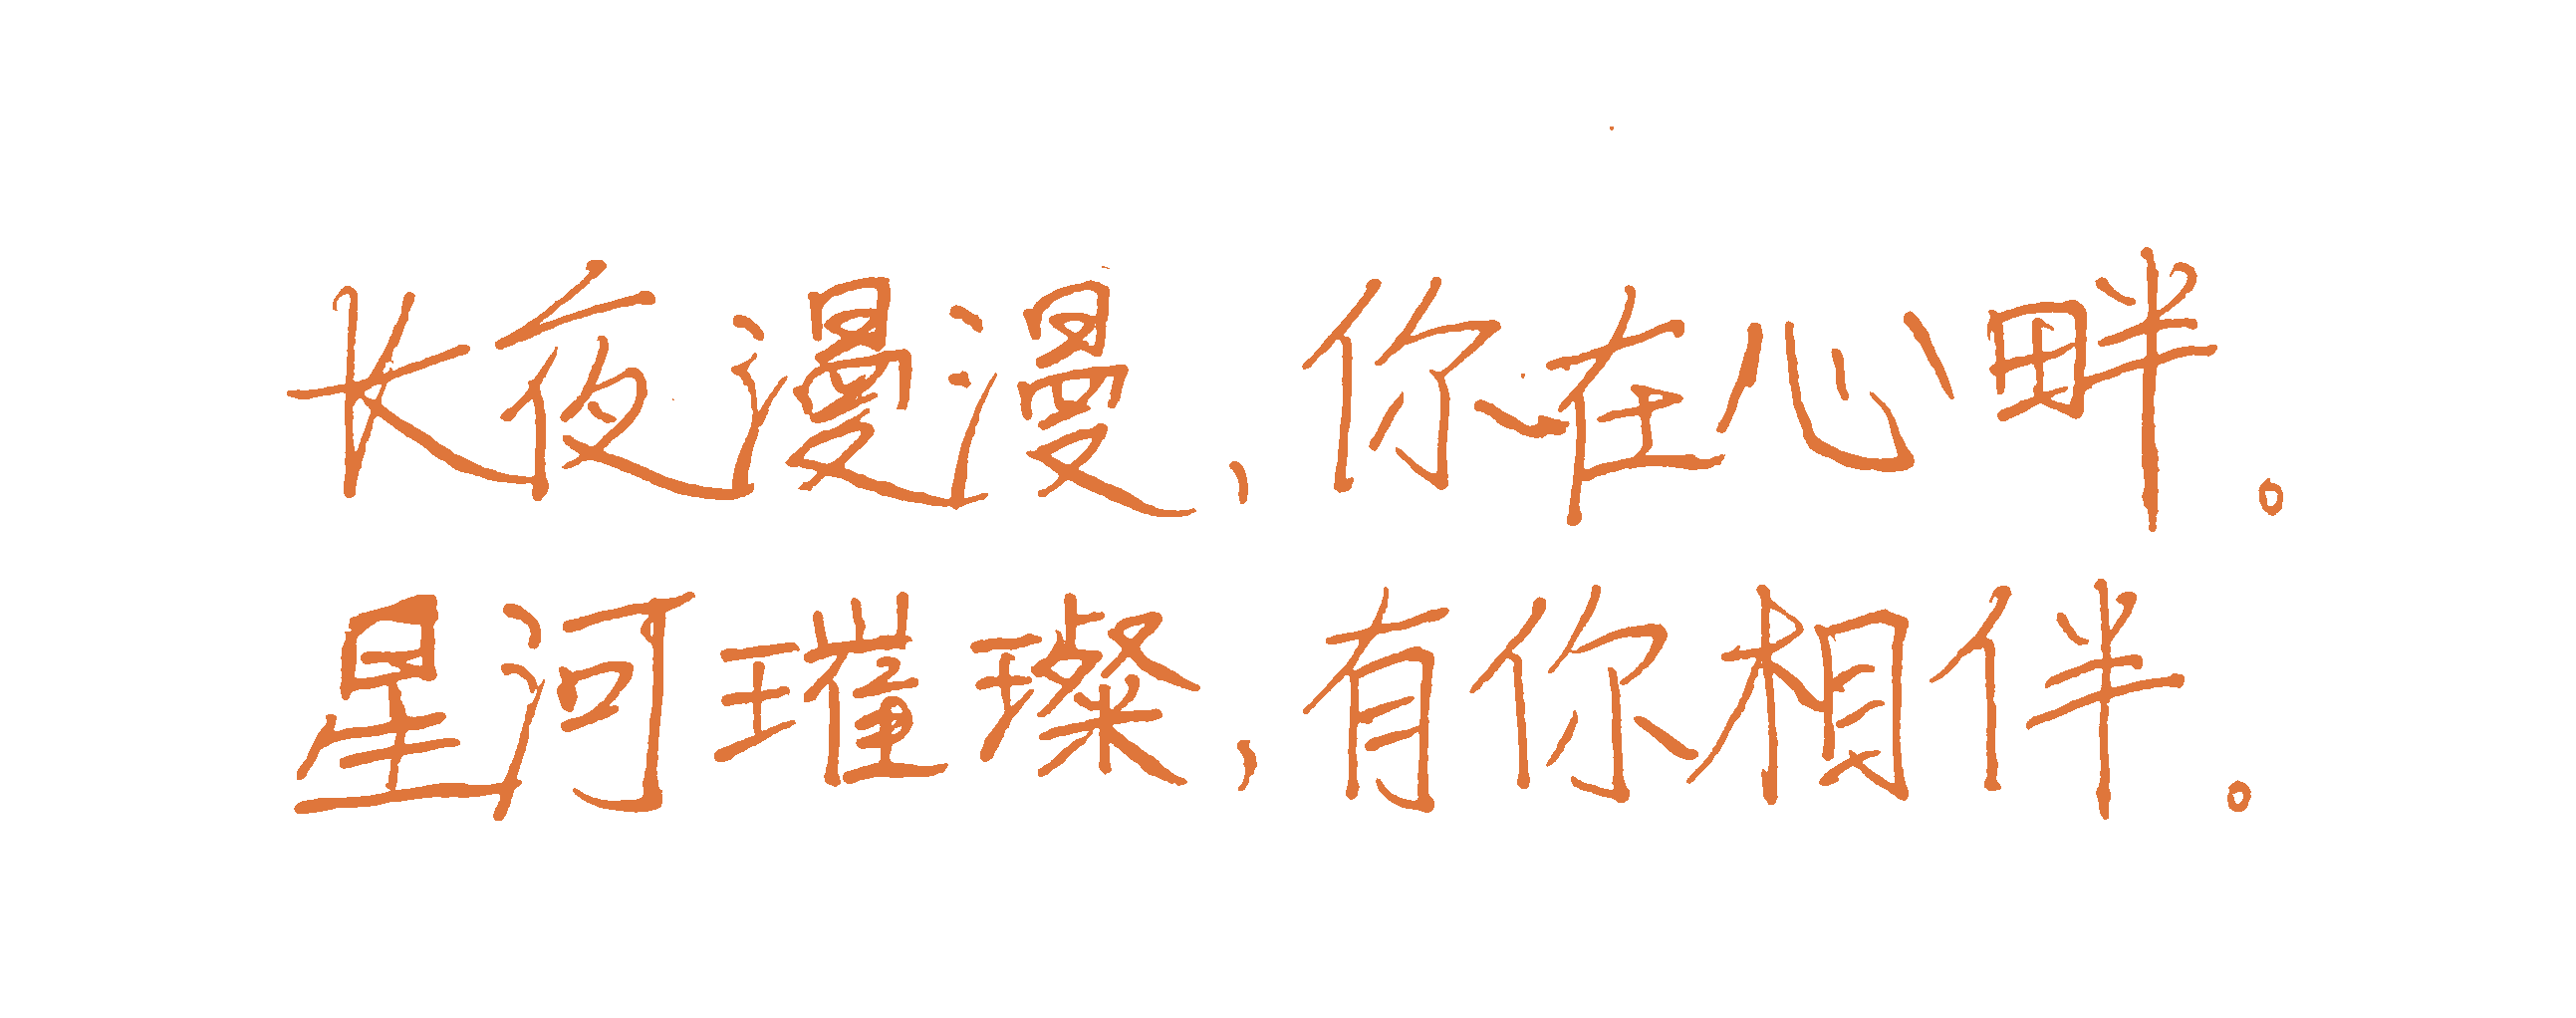 长夜漫漫，你在心畔。
星河璀璨，有你相伴。